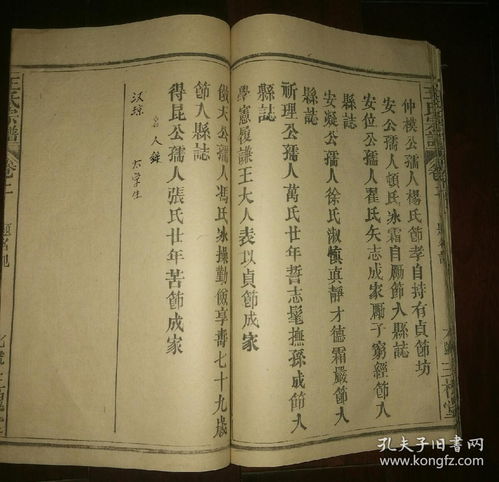 仲模公孺人楊氏節孝自持有貞節坊
安公孺人頓氏冰霜自厲節入縣誌
安位公孺人翟氏矢志成家厲子窮經節入
縣誌
安凝公孺人徐氏淑慎眞靜才德霜嚴節入
縣誌
祈理公孺人萬氏廿年誓志髦撫孫成節入
縣誌
學憲復謙王大人表以貞節成家
儆大公孺人馮氏冰操勤儉享壽七十九歲
節入縣誌
得昆公孺人張氏廿年苦節成家
人
大學生
王氏宗譜
卷二
孔夫子旧书网
www.kongfz.com